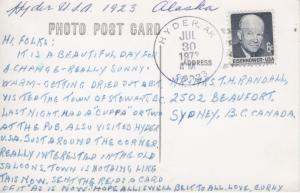 Hyder U.S.A. 1923 Alaska
PHOTO POST CARD
HYDER, AK
JUL
30
AM
EISENHOWER · USA
HI, FOLKS:
IT IS A BEAUTIFUL DAY FOR
A CHANGE - REALLY SUNNY
WARM - GETTING DRIED OUT A BIT
VISITED THE TOWN OF STEWART B.C.
LAST NIGHT. HAD A "CUPPA" OR TWO
AT THE PUB. ALSO VISITED HYDER
U.S.A. JUST AROUND THE CORNER.
REALLY INTERESTING IN THE OLD
SALOONS. TOWN IS NOTHING LIKE
THIS NOW. SENT THE KIDS A CARD
OF IT AS IS NOW. HOPE ALL IS WELL. BEST TO ALL. LOVE,
ADDRESS
MR & MRS. T. H. RANDALL,
2502 BEAUFORT,
SYDNEY, B.C. CANADA.